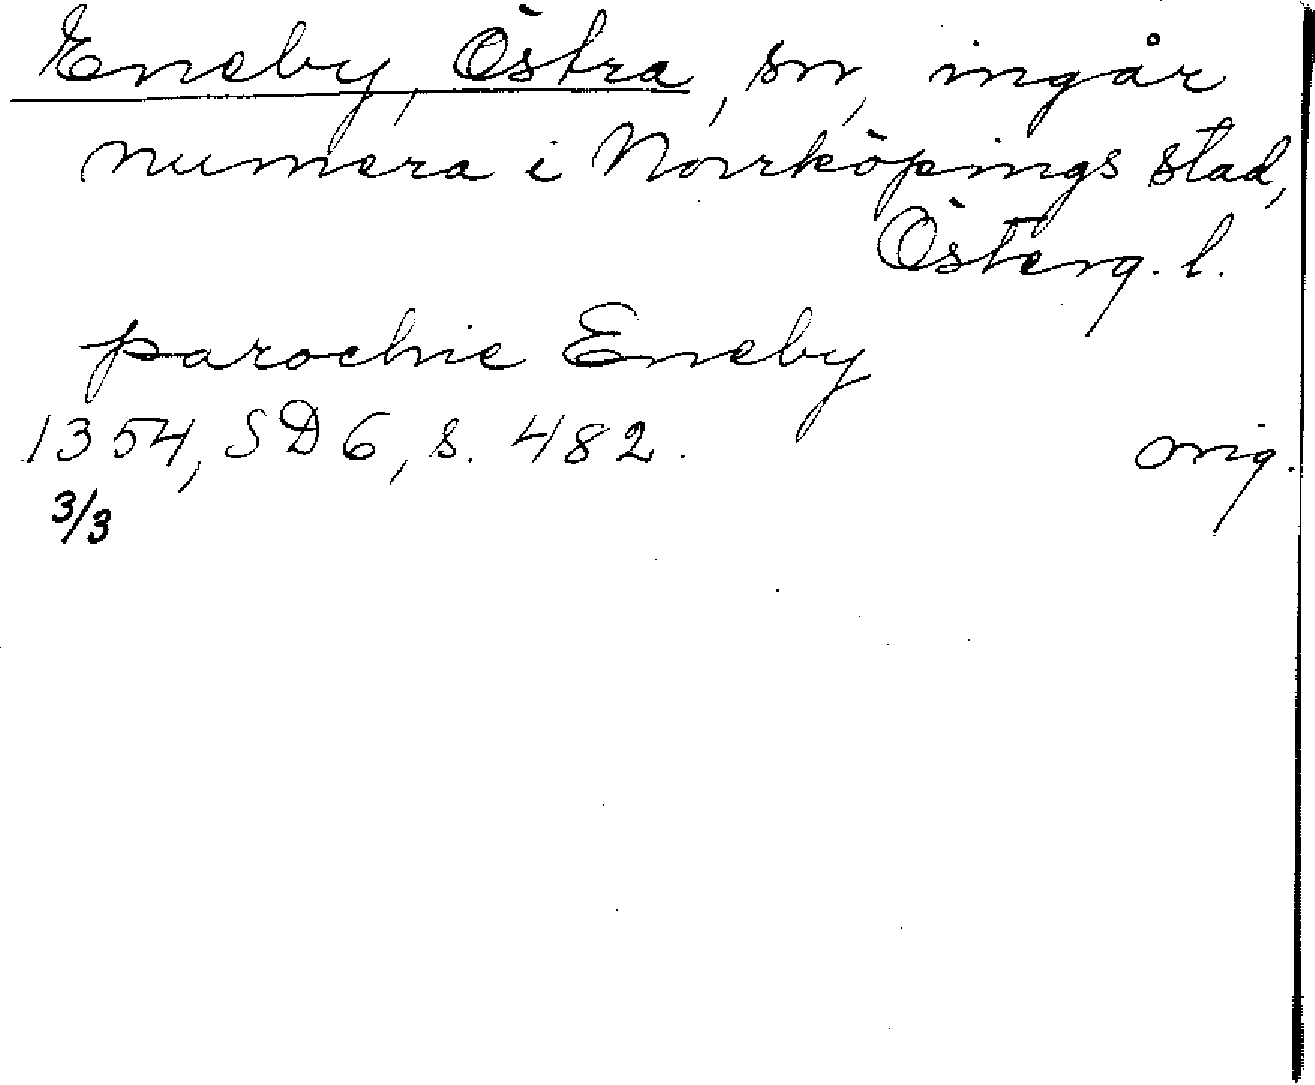 Eneby, Östra, sn, ingår
numera i Norrköpings stad,
Österg. l.
parochie Eneby
1354, SD 6, s. 482. orig.
3/3